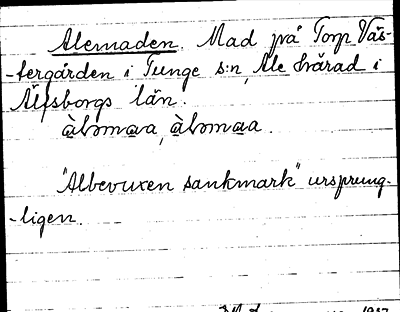 Alemaden. Mad på Torp Väs-
-tergården i Tunge s:n, Ale härad i
Älfsborgs län.
"Albevuxen sankmark" ursprung-
-ligen.
1937